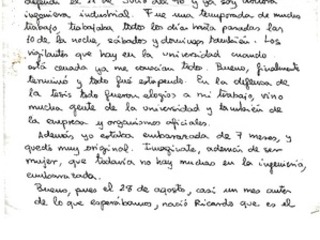 defendí el 11 de Julio del 90 y ya soy doctora
ingeniera industrial. Fue una temporada de mucho
trabajo, trabajaba todos los días hasta pasadas las
10 de la noche, sábados y domingos también. Los
vigilantes que hay en la universidad cuando
está cerrada ya me conocían todos. Bueno, finalmente
terminó y todo fue estupendo. En la defensa de
la tesis todo fueron elogios a mi trabajo, vino
mucha gente de la universidad y también de
la empresa y organismos oficiales.
Además yo estaba embarazada de 7 meses, y
quedó muy original. Imagínate, además de ser
mujer, que todavía no hay muchas en la ingeniería,
embarazada.
Bueno, pues el 28 de agosto, casi un mes antes
de lo que esperábamos, nació Ricardo que es el